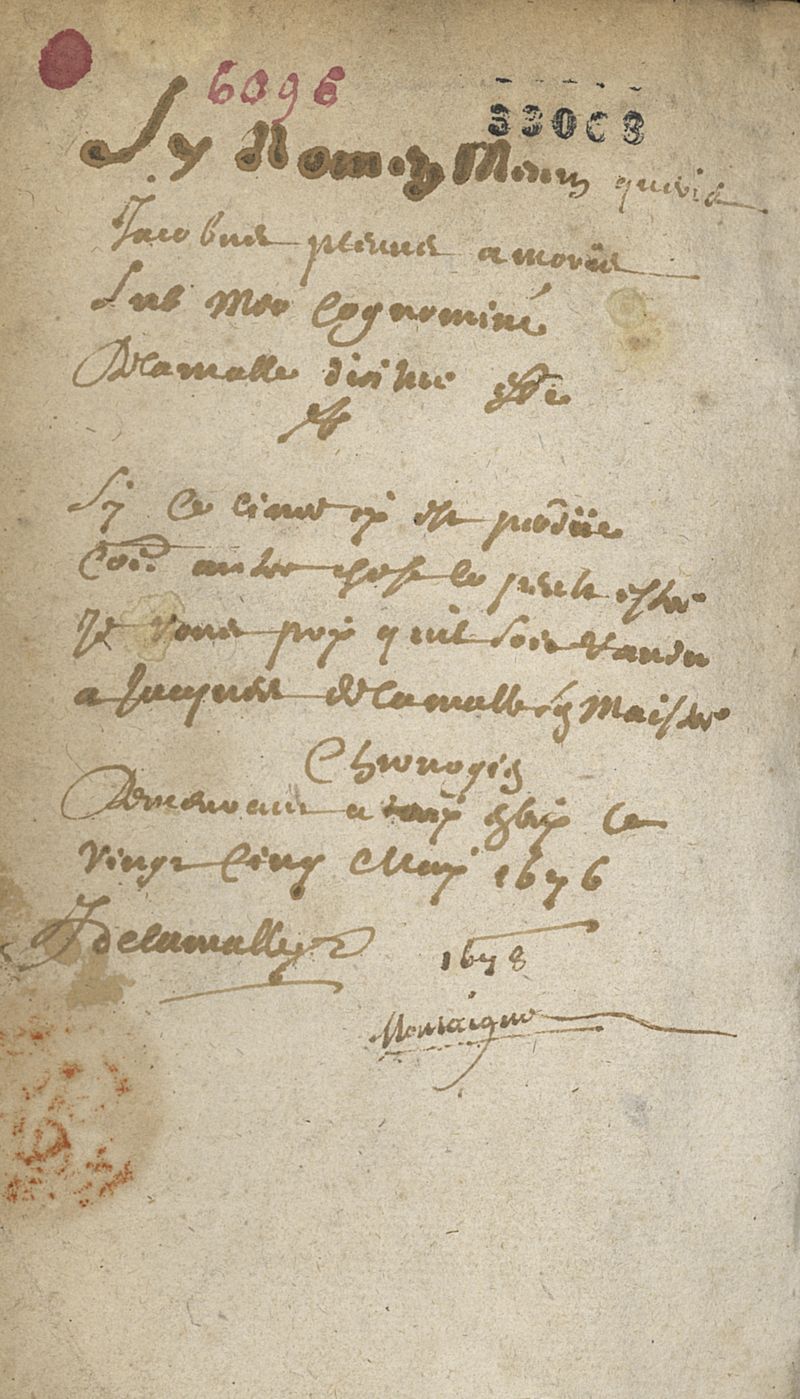 6096
33068
Sy Nomen Meum queris
Jacobus plenus amoris
Sub Meo Cognominé
Delamalle disitur esse
Sy Ce Livre cy est perdüe
Com̃ autre chose le peult estre
Je vous pry quil soit randu
a Jacques delamalle Maistre
Chirurgien
Demeurant a Ce
vingt Cinq May 1676
J delamalle
1678
Montaigne